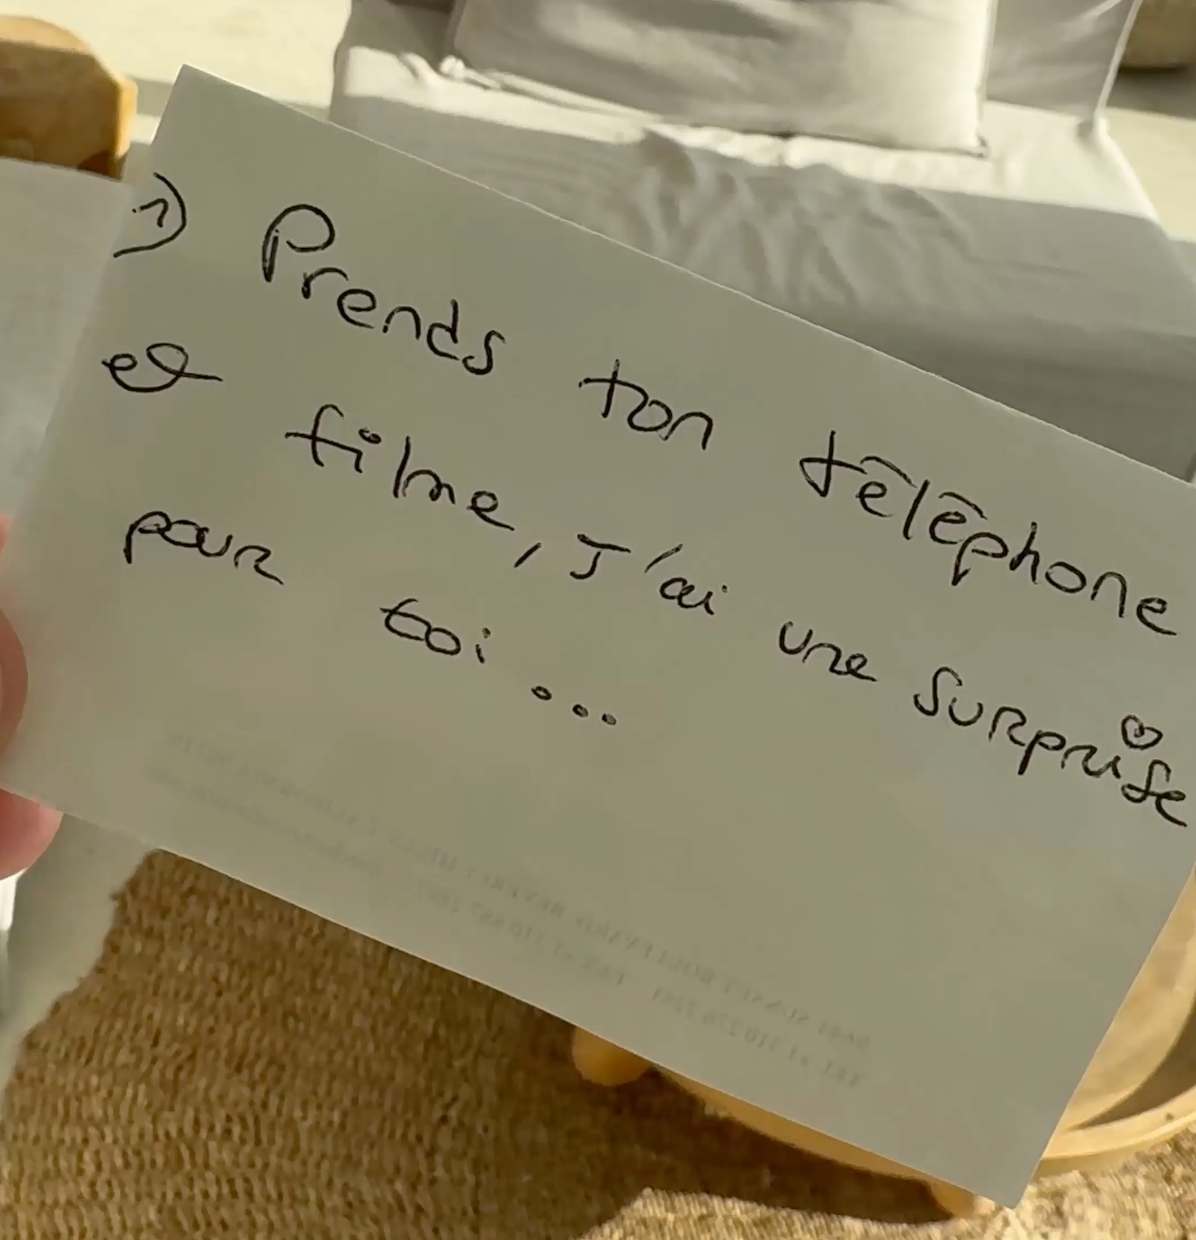 1) Prends ton téléphone
et filme, J'ai une surprise
pour toi...